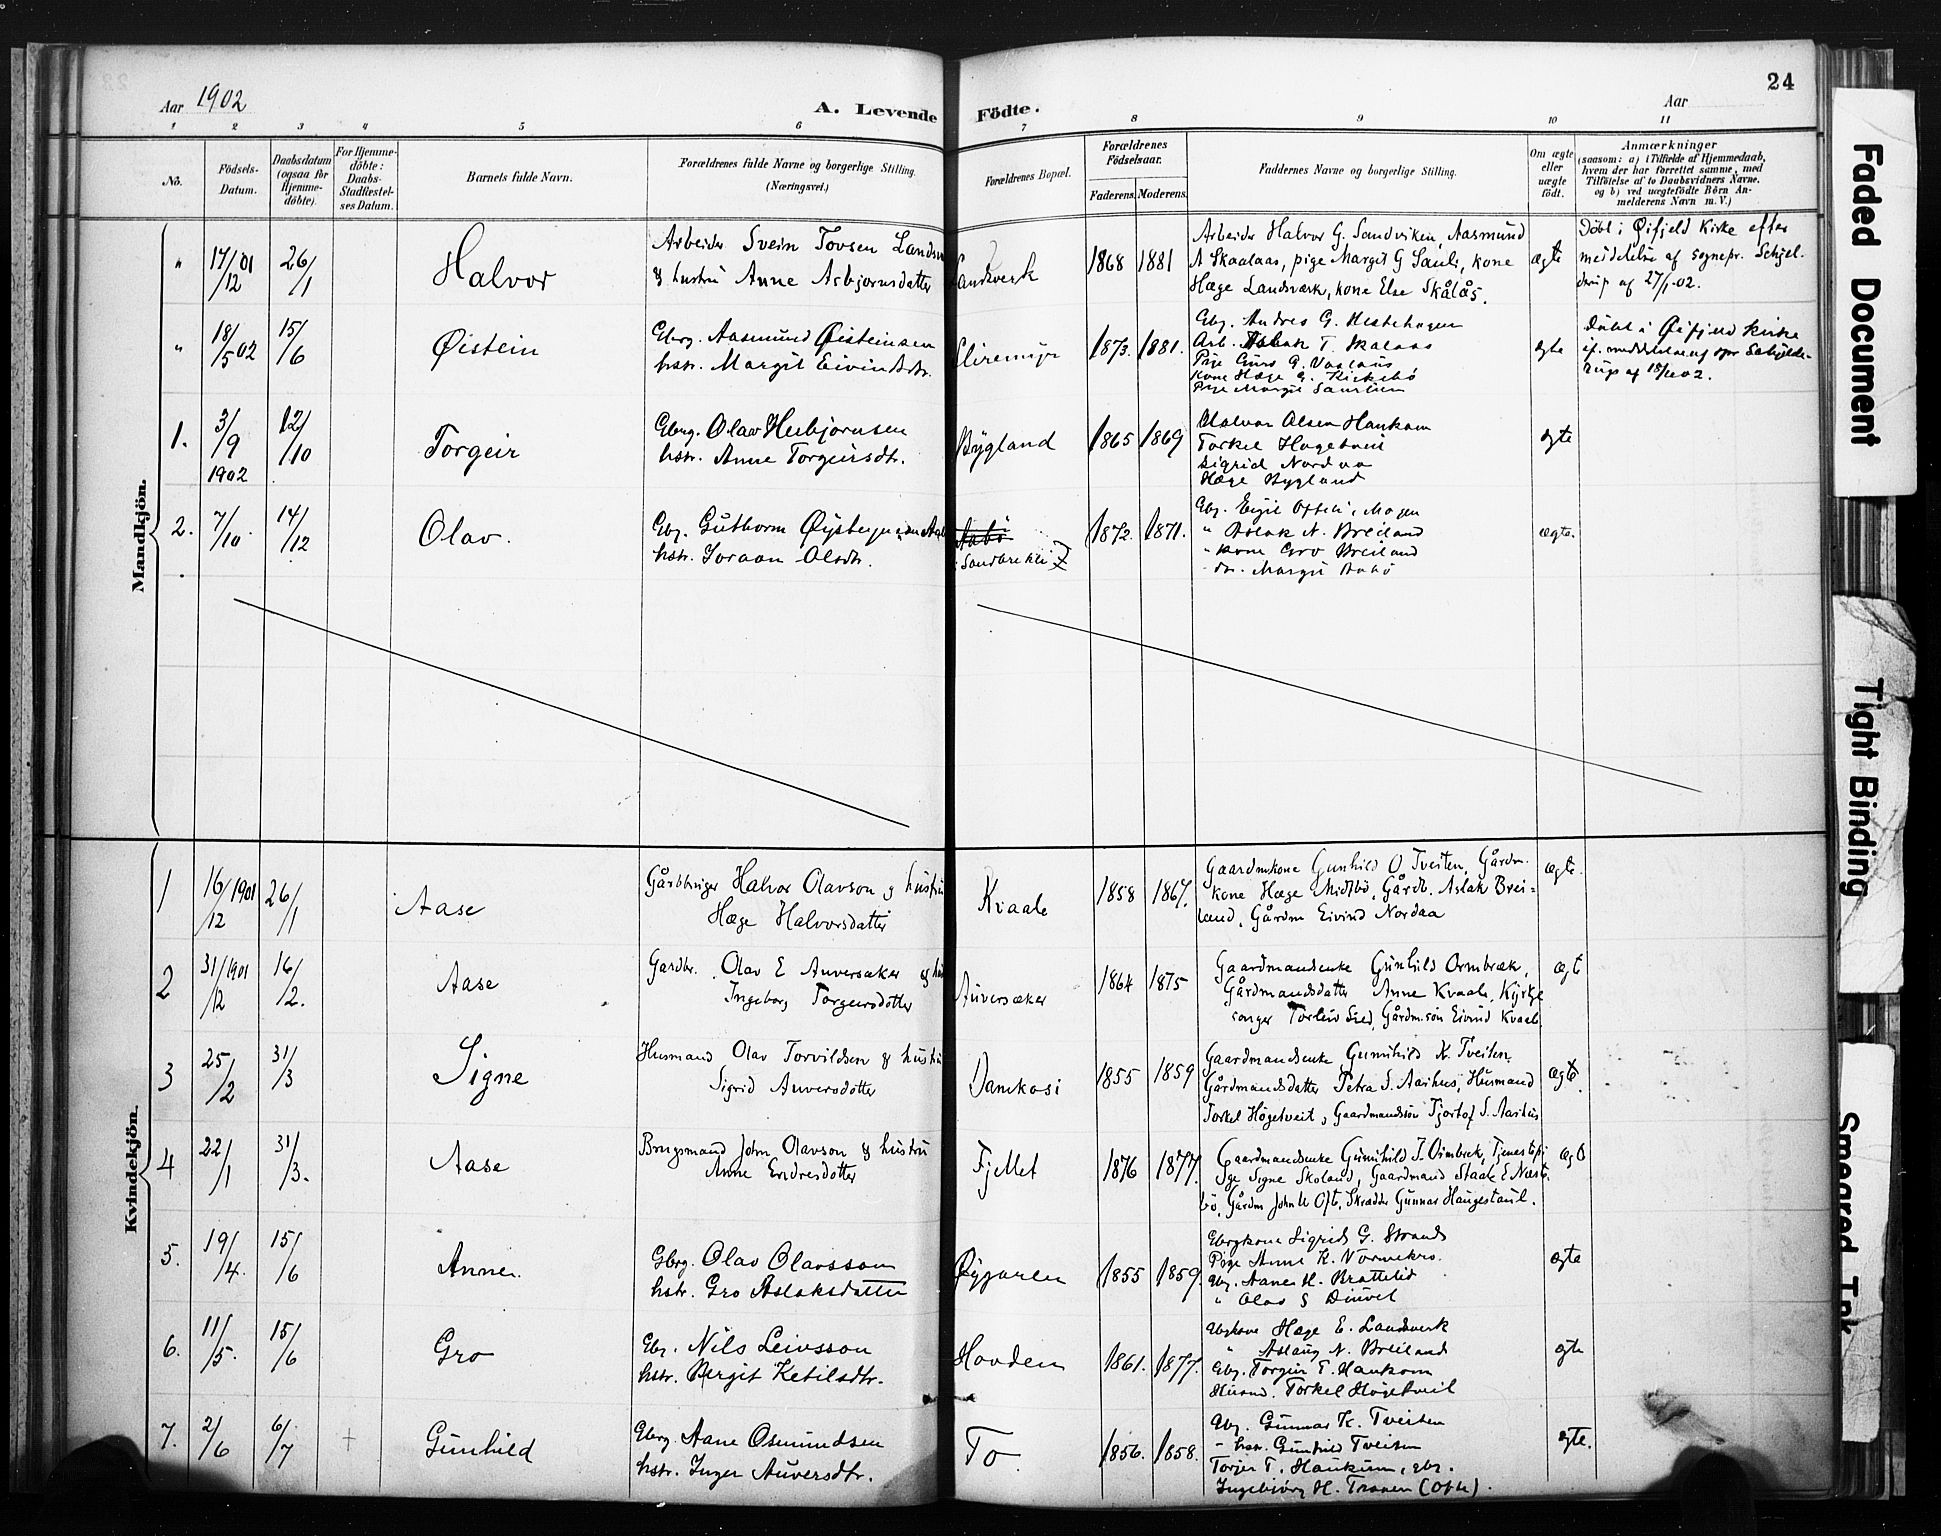 Aar 1902
A. Levende Födte.
Aar
24
1 2 3 4 5 6 7 8 9 10 11
No.
Födsels-
Datum.
Daabsdatum
(ogsaa for
Hjemme-
döbte).
For Hjemme-
döbte:
Daabs-
Stadfæstel-
ses Datum.
Barnets fulde Navn.
Forældrenes fulde Navne og borgerlige Stilling.
(Næringsvei.)
Forældrenes Bopæl.
Forældrenes
Födselsaar.
Faderens. Moderens.
Faddernes Navne og borgerlige Stilling.
Om ægte
eller
uægte
födt.
Anmærkninger
(saasom: a) i Tilfælde af Hjemmedaab,
hvem der har forrettet samme, med
Tilföielse af to Daabsvidners Navne.
og b) ved uægtefödte Börn An-
melderens Navn m. V.)
Mandkjön.
" 17/12 01 26/1 Halvor
Arbeider Svein Tovsen
& hustru Anne Asbjørnsdatter
Landsverk 1868 1881
Arbeider Halvor G. Sandviken, Aasmund
A Skaalaas, pige Margit G Sauli, kone
Hæge Landsværk, kone Else Skålås.
ægte
Döbt i Øifjeld Kirke efter
meddelelse af sognepr. Schjel-
derup af 27/1-02.
" 18/5 02 15/6 Øistein
Gbrg. Aasmund Øisteinsen
hstr. Margit Eivindsdtr.
1873. 1881.
Gbg. Andres G. Hestehagen
Arb. Aslak T. Skalaas
Pige Guro G. Vaalaus
Kone Hæge G. Kirkebö
Pige Margit
ægte
Döbt i Øifjeld kirke
if. meddelelse af spr Schjelde-
rup af
1. 3/9 1902 12/10 Torgeir
Gbrg. Olav Herbjørnsen
hstr. Anne Torgeirsdtr.
Bygland 1865 1869
Halvor Olsen Haukom
Torkel Høgetveit
Sigrid Nordaa
Hæge Bygland
ægte
2. 7/10. 14/12 Olav.
Gbg. Guthorm Øysteinsen
hstr. Joraan Olsdtr.
Aabö
Sandbrekke
1872. 1871.
Gbg. Eigil Ofte i Mogen
" Aslak N. Breiland
" kone Gro Breiland
do. Margit Aabö
ægte.
Kvindekjön.
1 16/12 1901 26/1 Aase
Gårdbruger Halvor Olavson og hustru
Hæge Halvorsdatter
Kvaale 1858 1867.
Gaardmkone Gunhild O Tveiten, Gårdm-
kone Hæge Midtbö, Gårdb. Aslak Brei-
land, Gårdm Eivind Nordaa
ægte.
2 31/12 1901 16/2. Aase
Gardbr. Olav E Auversaker og
Ingeborg Torgeirsdotter
Auversaker 1864 1875
Gaardmandsenke Gunhild Ormbræk,
Gårdmandsdatter Anne Kvaale, Kyrkje
songer Torleiv Lied, Gårdm.sön Eivind Kvaale
ægt
3 25/2 31/3 Signe
Husmand Olav Torvildsen & hustru
Sigrid Auversdotter
Damkasi 1855 1859
Gaardmandsenke Gunnhild K. Tveiten,
Gårdmandsdatter Petra S. Aarhus, Husmand
Torkel Högetveit, Gaardmandssön Tjostof S. Aarhus
ægt.
4 22/1 31/3. Aase
Brugsmand John Olavson & hustru
Anne Endresdotter
Fjellet 1876 1877.
Gaardmandsenke Gunnhild J. Ormbrek, Tjenestepi
ge Signe Skoland, Gaardmand Staale E Næst-
bö, Gårdm John U Ofte, Skrædder Gunnar Haugestaul.
ægt
5. 19/4. 15/6 Anne.
Gbrg. Olav Olavsson
hstr. Gro Aslaksdatter
Øygaren 1855 1859
Gbrgkone Sigrid G. Strand
Pige Anne K.
Gbg. Aanen H. Brattelid
" Olav S
ægte
6. 11/5. 15/6 Gro
Gbr. Nils Leivsson
hstr. Birgit Ketilsdtr.
Hovden 1861. 1877.
Gbgkone Hæge E. Landsverk
" Aslaug N. Breiland
Gbg. Torgeir T. Haukom
Husmd. Torkel Högetveit
ægte
7. 2/6 6/7 + Gunhild
Gbrg Aane Osmundsen
hstr. Inger Auversdtr.
To 1856. 1858.
Gbg. Gunnar K. Tveiten
" hstr. Gunhild Tveiten
Torjer T. Haukum, gbg.
Ingebjörg H. Tronen (Ofte).
ægte.
Faded Document
Tight Binding
Smeared Ink